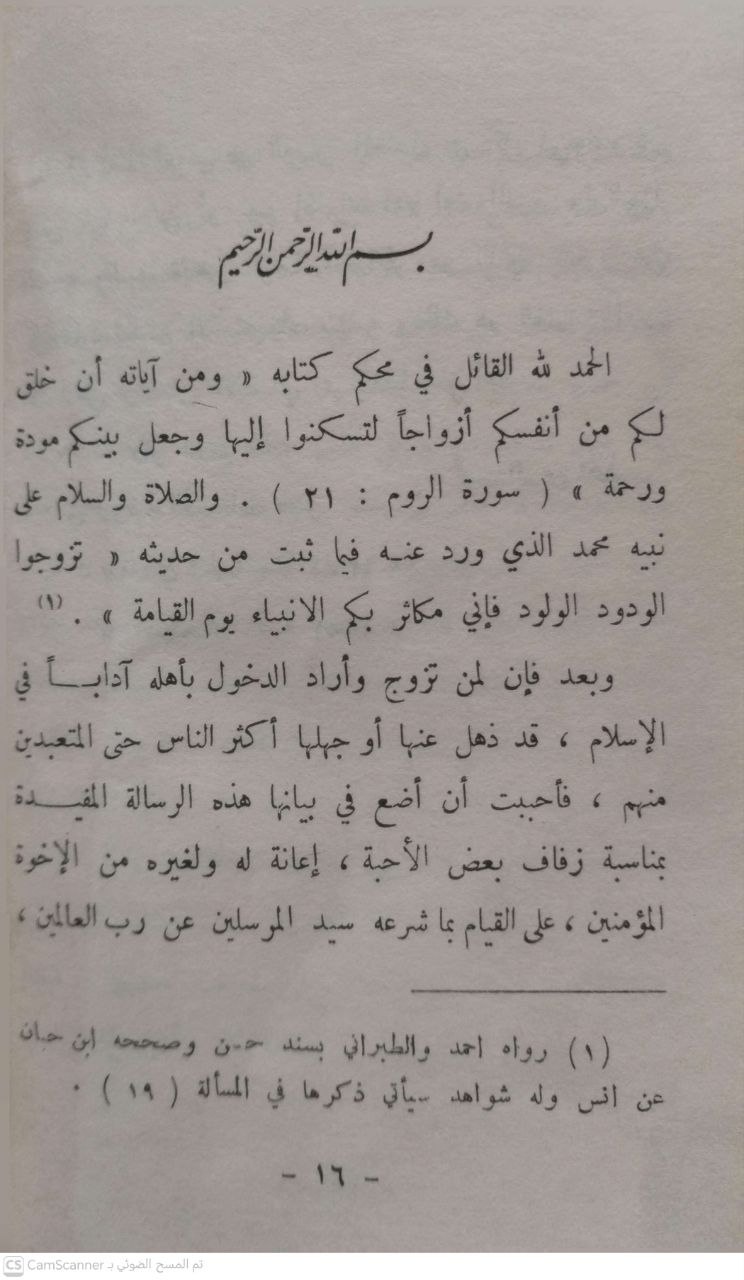 بسم الله الرحمن الرحيم
الحمد لله القائل في محكم كتابه « ومن آياته أن خلق
لكم من أنفسكم أزواجاً لتسكنوا إليها وجعل بينكم مودة
ورحمة » ( سورة الروم : ٢١ ) . والصلاة والسلام على
نبيه محمد الذي ورد عنـه فيما ثبت من حديثه « تزوجوا
الودود الولود فإني مكاثر بكم الانبياء يوم القيامة » . (١)
وبعد فإن لمن تزوج وأراد الدخول بأهله آدابــاً في
الإسلام ، قد ذهل عنها أو جهلها أكثر الناس حتى المتعبدين
منهم ، فأحببت أن أضع في بيانها هذه الرسالة المفيــدة
بمناسبة زفاف بعض الأحبة ، إعانة له ولغيره من الإخوة
المؤمنين ، على القيام بما شرعه سيد المرسلين عن رب العالمين ،
(١) رواه احمد والطبراني بسند حسن وصححه ابن حبان
عن انس وله شواهد سيأتي ذكرها في المسألة ( ١٩ ) .
- ١٦ -
CS CamScanner تم المسح الضوئي بـ